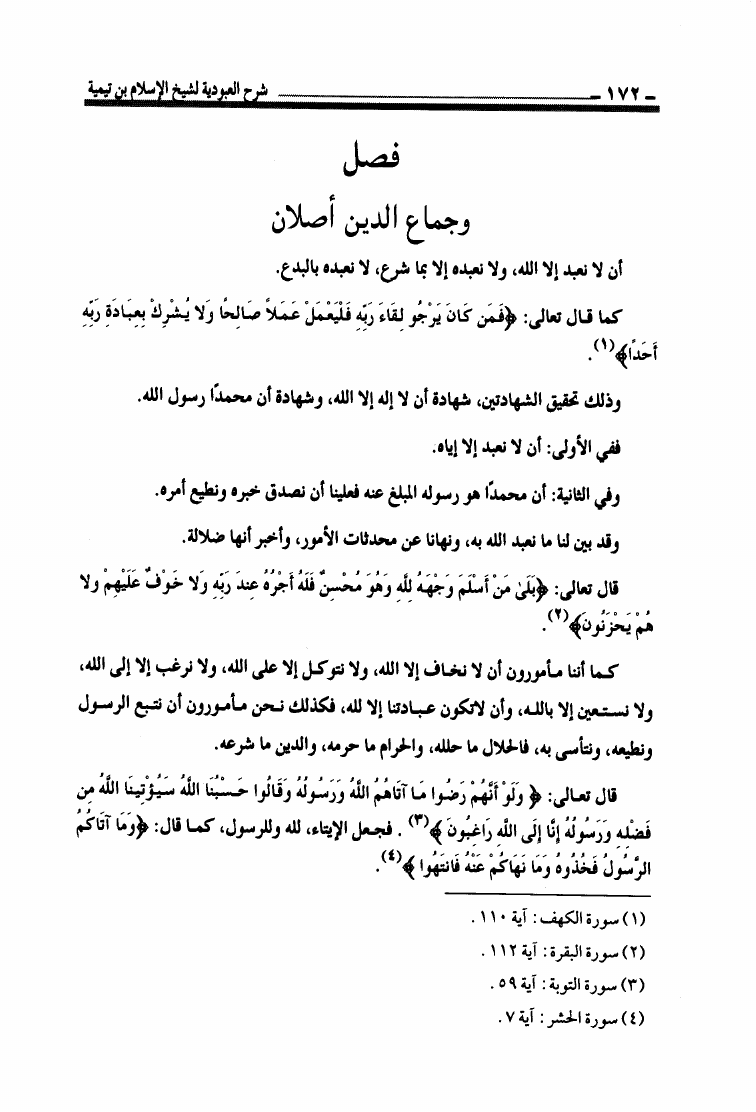 - ١٧٢ - شرح العبودية لشيخ الإسلام بن تيمية
فصل
وجماع الدين أصلان
أن لا نعبد إلا الله، ولا نعبده إلا بما شرع، لا نعبده بالبدع.
كما قال تعالى: ﴿فَمَن كَانَ يَرْجُو لِقَاءَ رَبِّهِ فَلْيَعْمَلْ عَمَلاً صَالِحًا وَلا يُشْرِكْ بِعِبَادَةِ رَبِّهِ
أَحَدًا﴾(١).
وذلك تحقيق الشهادتين، شهادة أن لا إله إلا الله، وشهادة أن محمدًا رسول الله.
ففي الأولى: أن لا نعبد إلا إياه.
وفي الثانية: أن محمدًا هو رسوله المبلغ عنه فعلينا أن نصدق خبره ونطيع أمره.
وقد بين لنا ما نعبد الله به، ونهانا عن محدثات الأمور، وأخبر أنها ضلالة.
قال تعالى: ﴿بَلَىٰ مَنْ أَسْلَمَ وَجْهَهُ لِلَّهِ وَهُوَ مُحْسِنٌ فَلَهُ أَجْرُهُ عِندَ رَبِّهِ وَلا خَوْفٌ عَلَيْهِمْ وَلا
هُمْ يَحْزَنُونَ﴾(٢).
كما أننا مأمورون أن لا نخاف إلا الله، ولا نتوكل إلا على الله، ولا نرغب إلا إلى الله،
ولا نستعين إلا بالله، وأن لاتكون عبادتنا إلا لله، فكذلك نحن مأمورون أن نتبع الرسول
ونطيعه، ونتأسى به، فالحلال ما حلله، والحرام ما حرمه، والدين ما شرعه.
قال تعالى: ﴿ وَلَوْ أَنَّهُمْ رَضُوا مَا آتَاهُمُ اللَّهُ وَرَسُولُهُ وَقَالُوا حَسْبُنَا اللَّهُ سَيُؤْتِينَا اللَّهُ مِن
فَضْلِهِ وَرَسُولُهُ إِنَّا إِلَى اللَّهِ رَاغِبُونَ ﴾(٣) . فجعل الإيتاء، لله وللرسول، كما قال: ﴿وَمَا آتَاكُمُ
الرَّسُولُ فَخُذُوهُ وَمَا نَهَاكُمْ عَنْهُ فَانتَهُوا ﴾(٤).
(١) سورة الكهف: آية ١١٠ .
(٢) سورة البقرة: آية ١١٢ .
(٣) سورة التوبة: آية ٥٩ .
(٤) سورة الحشر: آية ٧ .